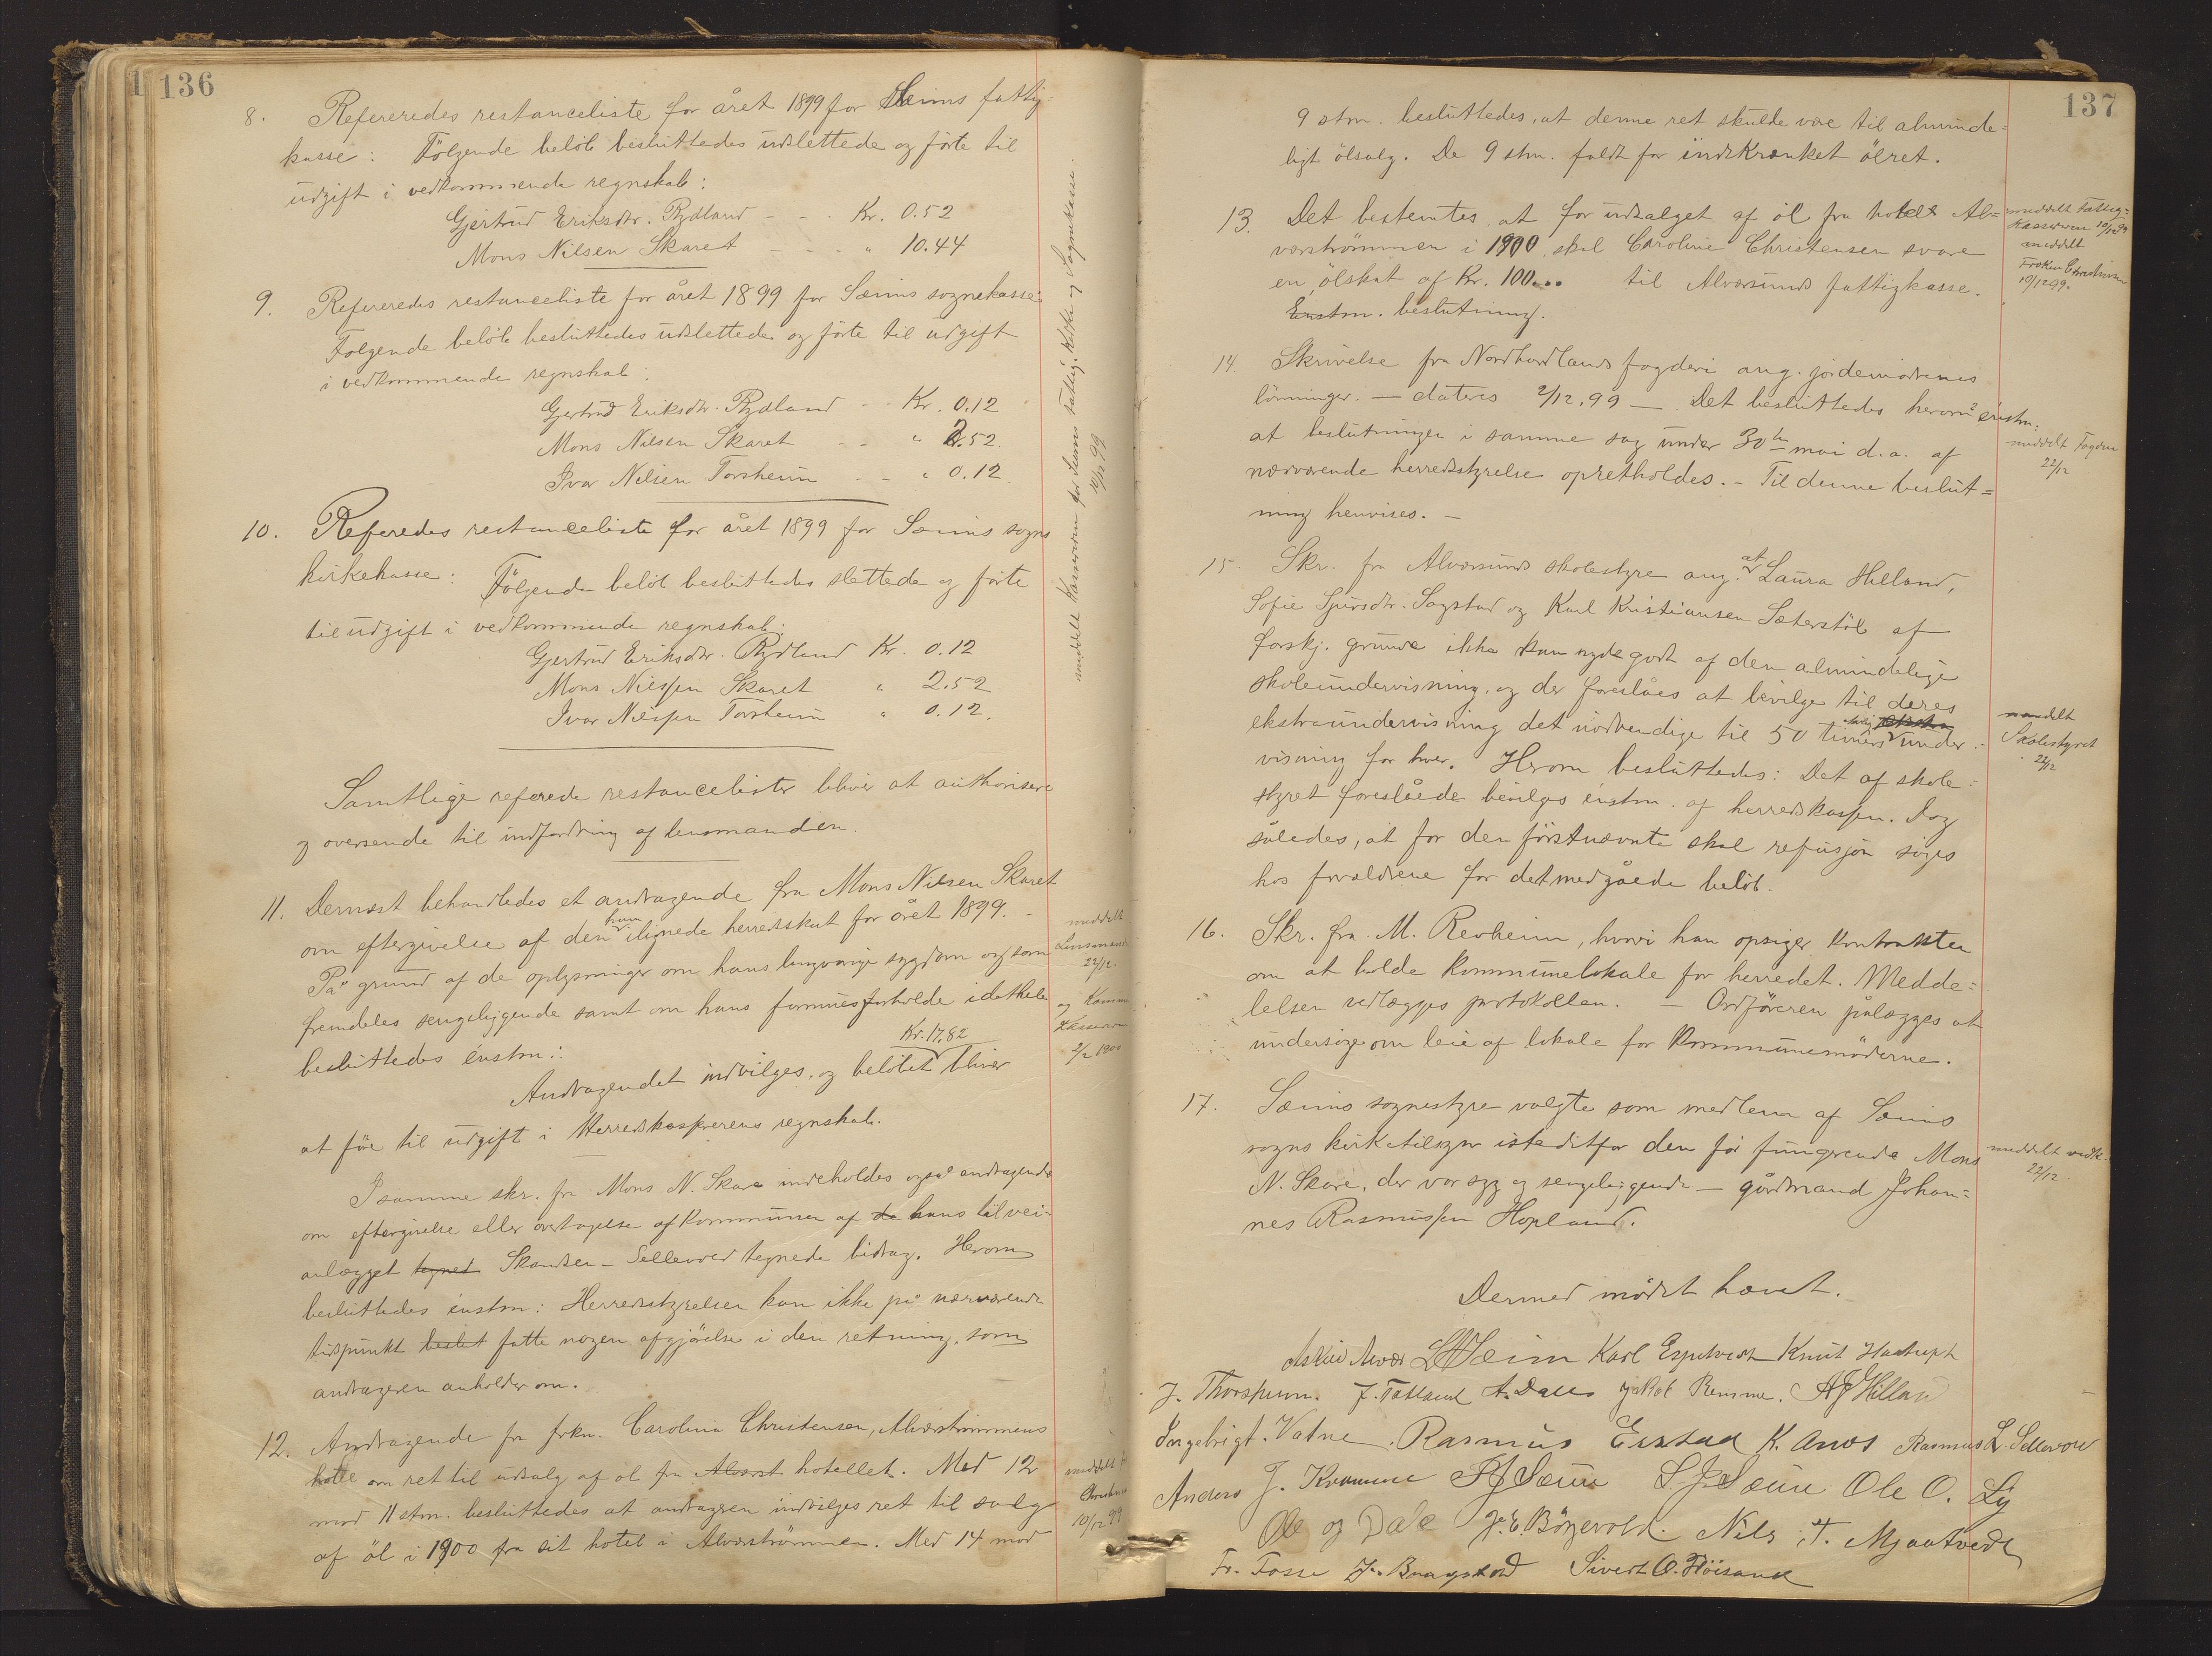 136
8. Refereredes restanceliste for året 1899 for Seims fattig-
kasse: Følgende beløb besluttedes udslettede og førte til
udgift i vedkommende regnskab:
Gjertrud Eriksdtr. Rydland - - - Kr. 0.52
Mons Nilsen Skaret - - - " 10.44
9. Refereredes restanceliste for året 1899 for Sæims sognekasse:
Følgende beløb besluttedes udslettede og førte til udgift
i vedkommende regnskab:
Gjertrud Eriksdtr. Rydland - - Kr. 0.12
Mons Nilsen Skaret - - " 2.52.
Ivar Nilsen Torsheim - - " 0.12.
10. Referedes restanceliste for året 1899 for Sæims sogns
kirkekasse: Følgende beløb besluttedes slettede og førte
til udgift i vedkommende regnskab:
Gjertrud Eriksdtr. Rydland Kr. 0.12
Mons Nilssen Skaret " 2.52
Ivar Nilssen Torsheim " 0.12.
meddelt Kassereren for Seims Fattig, Kirke og Sognekasse.
10/12 99
Samtlige referede restancelister bliver at authorisere
og oversende til indfordring af lensmanden.
11. Dernæst behandledes et andragende fra Mons Nilsen Skaret
om eftergivelse af den ham ilignede herredsskat for året 1899. -
På grund af de oplysninger om hans langvarige sygdom og som
fremdeles sengeliggende samt om hans formuesforholde idethele
besluttedes énstm.:
Andragendet indvilges, og beløbet Kr. 17,82 bliver
at føre til udgift i Herredskassererens regnskab.
meddelt
Lensmand
22/12.
og Kommune
Kasserer
2/2 1900
I samme skr. fra Mons N. Skare indeholdes også andragende
om eftergivelse eller overtagelse af kommunen af de hans til vei-
anlægget tegned Skandsen - Sellevold tegnede bidrag. Herom
besluttedes énstm: Herredsstyrelsen kan ikke på nærværende
tidspunkt beslut fatte nogen afgjørelse i den retning, som
andrageren anholder om.
12. Andragende fra frkn. Carolina Christensen, Alværstrømmens
hotel om ret til udsalg af øl fra Alværst hotellet. Med 12
mod 11 stm. besluttedes at andrageren indvilges ret til salg
af øl i 1900 fra sit hotel i Alværstrømmen. Med 14 mod
meddelt
10/12 99
137
9 stm. besluttedes, at denne ret skulde være til alminde-
ligt ølsalg. De 9 stm. faldt for indskrænket ølret.
13. Det bestemtes at for udsalget af øl fra hotelt Al-
værstrømmen i 1900 skal Caroline Christensen svare
en ølskat af Kr. 100... til Alværsunds fattigkasse.
Enstm. beslutning.
meddelt Fattig-
kassereren 10/12 99
meddelt
Frøken Christensen
10/12 99.
14. Skrivelse fra Nordhordlands fogderi ang. jordemødrenes
lønninger. - dateres 2/12.99 - Det besluttedes herom énstm:
at beslutningen i samme sag under 30te mai d.a. af
nærværende herredsstyrelse opretholdes. - Til denne beslut-
ning henvises. -
meddelt Fogden
22/12
15. Skr. fra Alværsunds skolestyre ang. at Laura Hilland,
Sofie Sjursdtr. Sagstad og Karl Kristiansen Sæterstøl af
forskj. grunde ikke kan nyde godt af den almindelige
skoleundervisning, og der foreslåes at bevilge til deres
ekstraundervisning det nødvendige til 50 timers under-
visning for hver. Herom besluttedes: Det af skole-
styret foreslåede bevilges énstm. af herredskassen. Dog
således, at for den førstnævnte skal refusjon søges
hos forældrene for det medgåede beløb.
meddelt
Skolestyret
22/12
16. Skr. fra M. Revheim, hvori han opsiger kontrakten
om at holde kommunelokale for herredet. Medde-
lelsen vedlægges protokollen. - Ordføreren pålægges at
undersøge om leie af lokale for kommunemøderne.
17. Sæims sognestyre valgte som medlem af Sæims
sogns kirketilsyn istedetfor den før fungerende Mons
N. Skare, der var syg og sengeliggende - gårdmand Johan-
nes Rasmussen Hopland.
meddelt vedk.
22/12
Dermed mødet hævet.
L Sæim Karl Espetvedt Knut Hastrup
J. Thorsheim. J. Tatland A. Dale Jakob Remme. A J Hilland
Ingebrigt. Vatne. Rasmus Eistad K. Anos Rasmus L. Sellevold
Anders J. Kvamme R J Sæim S. J. Sæim Ole O. Ly
Ole O Dale J. E. Bøgevold. Nils T. Mjaatvedt
Fr. Fosse J. Bragstad Sivert O. Fløisand